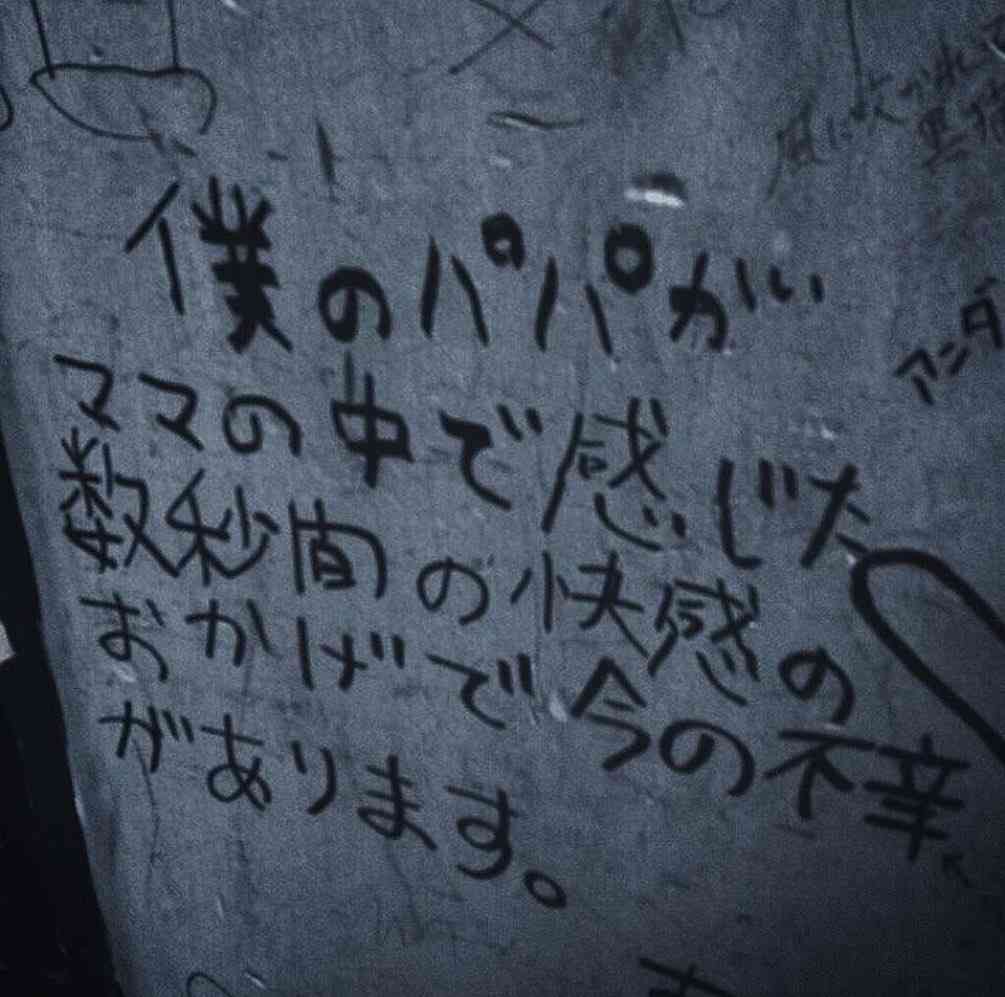 僕のパパがい
ママの中で感じた
数秒間の快感の
おかげで今の不幸
があります。
風に吹かれ
アンダ